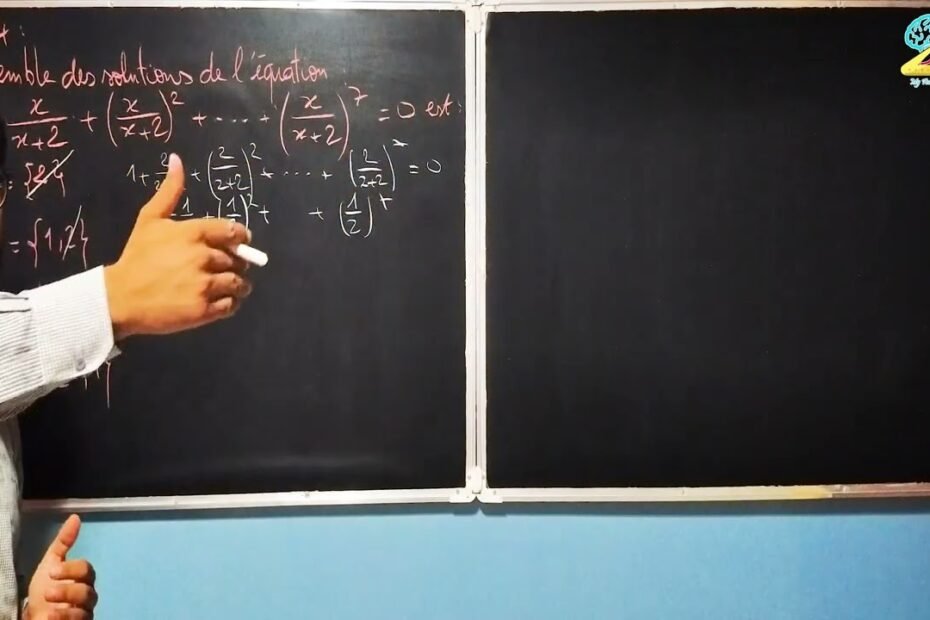 emble des solutions de l'équation
x/(x+2) + (x/(x+2))² + .... + (x/(x+2))⁷ = 0 est :
= {2} 1 + 2/ + (2/(2+2))² + ... + (2/(2+2))⁷ = 0
= {1, 2} 1 + (1/)² + + (1/2)⁷